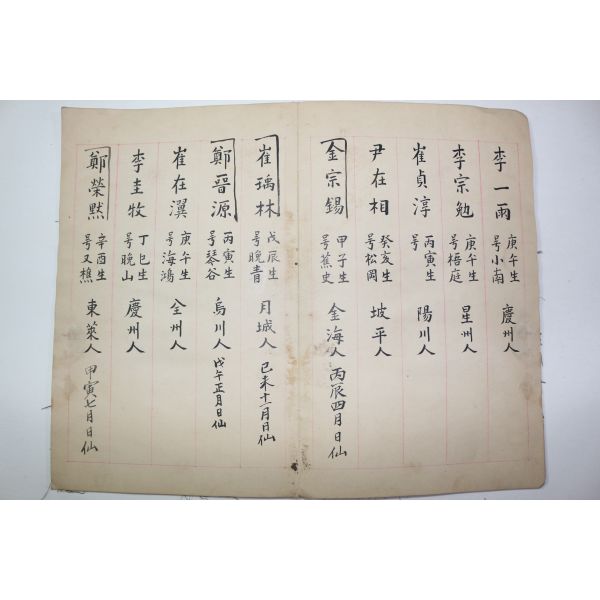 李一雨 庚午生 号小南 慶州人
李宗勉 庚午生 号梧庭 星州人
崔貞淳 丙寅生 号 陽川人
尹在相 癸亥生 号松岡 坡平人
金宗錫 甲子生 号蕉史 金海人 丙辰四月日仙
崔瑀林 戊辰生 号晩青 月城人 己未十一月日仙
鄭晋源 丙寅生 号琴谷 烏川人 戊午正月日仙
崔在瀷 庚午生 号海鴻 全州人
李圭牧 丁巳生 号晩山 慶州人
鄭榮黙 辛酉生 号又樵 東萊人 甲寅七月日仙